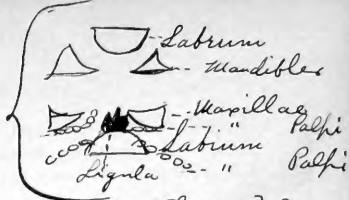 Labrum
Mandibles
Maxillae
" Palpi
Labium
" Palpi
Ligula